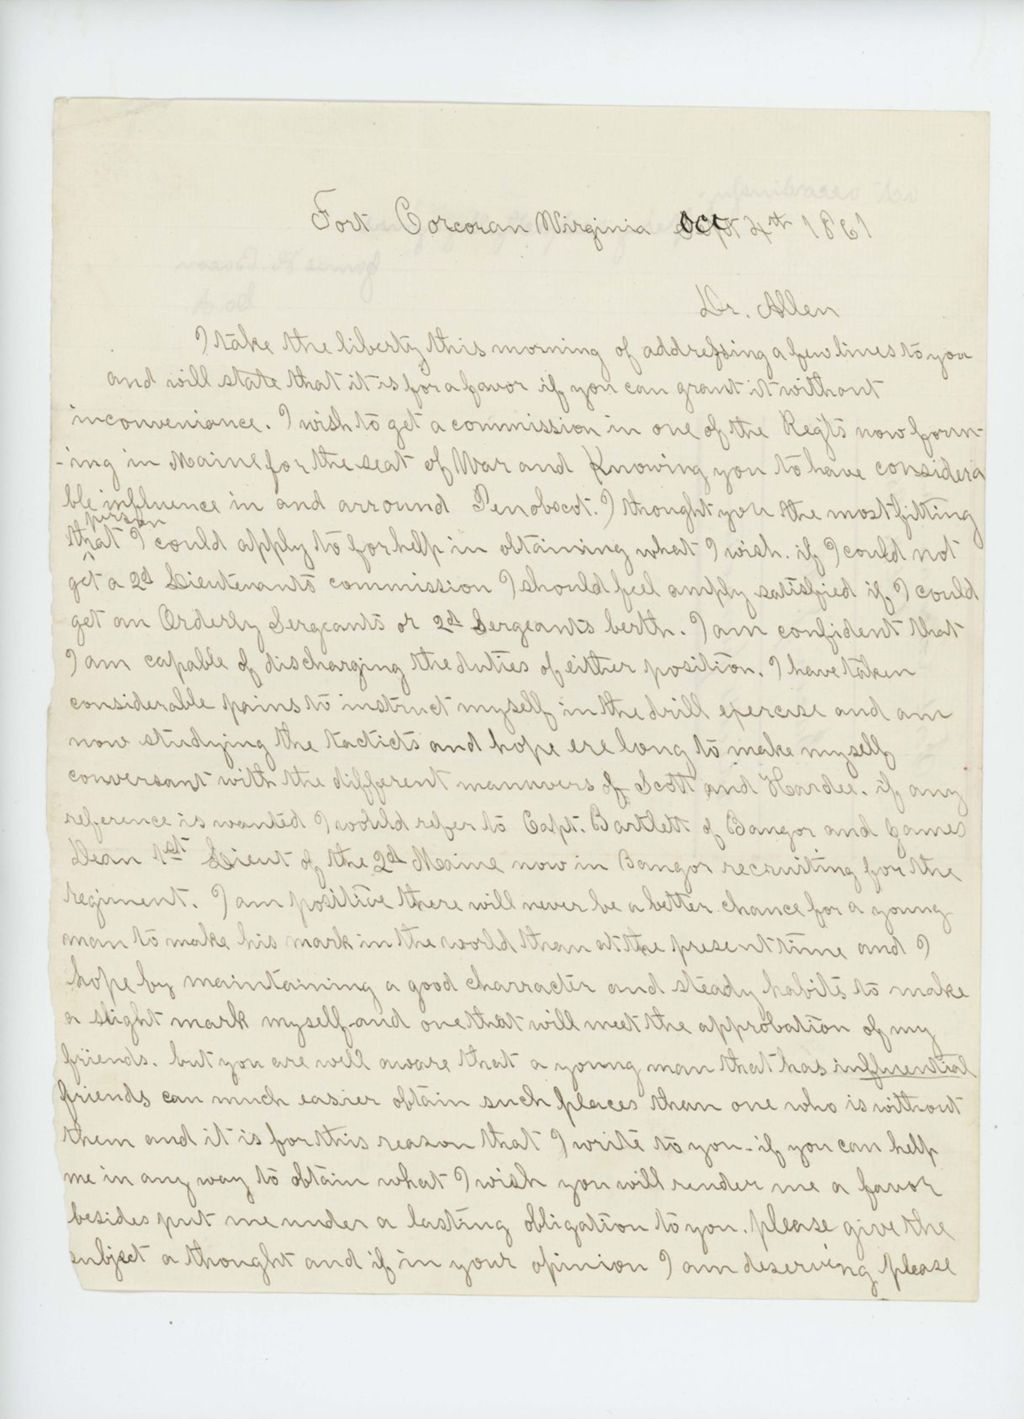 Fort Corcoran Virginia Oct 4th 1861
Dr. Allen
I take the liberty this morning of addressing a few lines to you
and will state that it is for a favor if you can grant it without
inconveniance. I wish to get a commission in one of the Reg'ts now form-
-ing in Maine for the seat of War and Knowing you to have considera
ble influence in and arround Penobscot. I thought you the most fitting
person
that I could apply to for help in obtaining what I wish. if I could not
get a 2d Lieutenants commission I should feel amply satisfied if I could
get an Orderly Sergeants or 2d Sergeants berth. I am confident that
I am capable of discharging the duties of either position. I have taken
considerable pains to instruct myself in the drill exercise and am
now studying the tacticts and hope ere long to make myself
conversant with the different manuvers of Scott and Hardee. if any
reference is wanted I would refer to Capt. Bartlett of Bangor and James
Dean 1st Lieut of the 2d Maine now in Bangor recruiting for the
regiment. I am positive there will never be a better chance for a young
man to make his mark in the world than at the present time and I
hope by maintaining a good charracter and steady habits to make
a slight mark myself and one that will meet the approbation of my
friends. but you are well aware that a young man that has influential
friends can much easier obtain such places than one who is without
them and it is for this reason that I write to you. if you can help
me in any way to obtain what I wish you will render me a favor
besides put me under a lasting obligation to you. please give the
subject a thought and if in your opinion I am deserving please